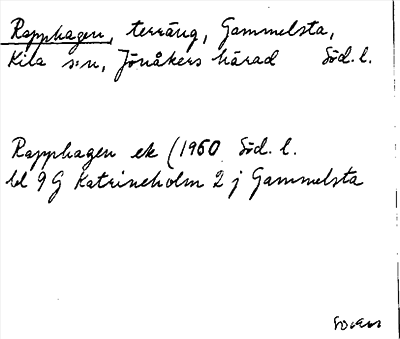 Rapphagen, terräng, Gammelsta,
Kila s:n, Jönåkers härad Söd. l.
Rapphagen ek (1960 Söd. l.
bl 9 G Katrineholm 2 j Gammelsta